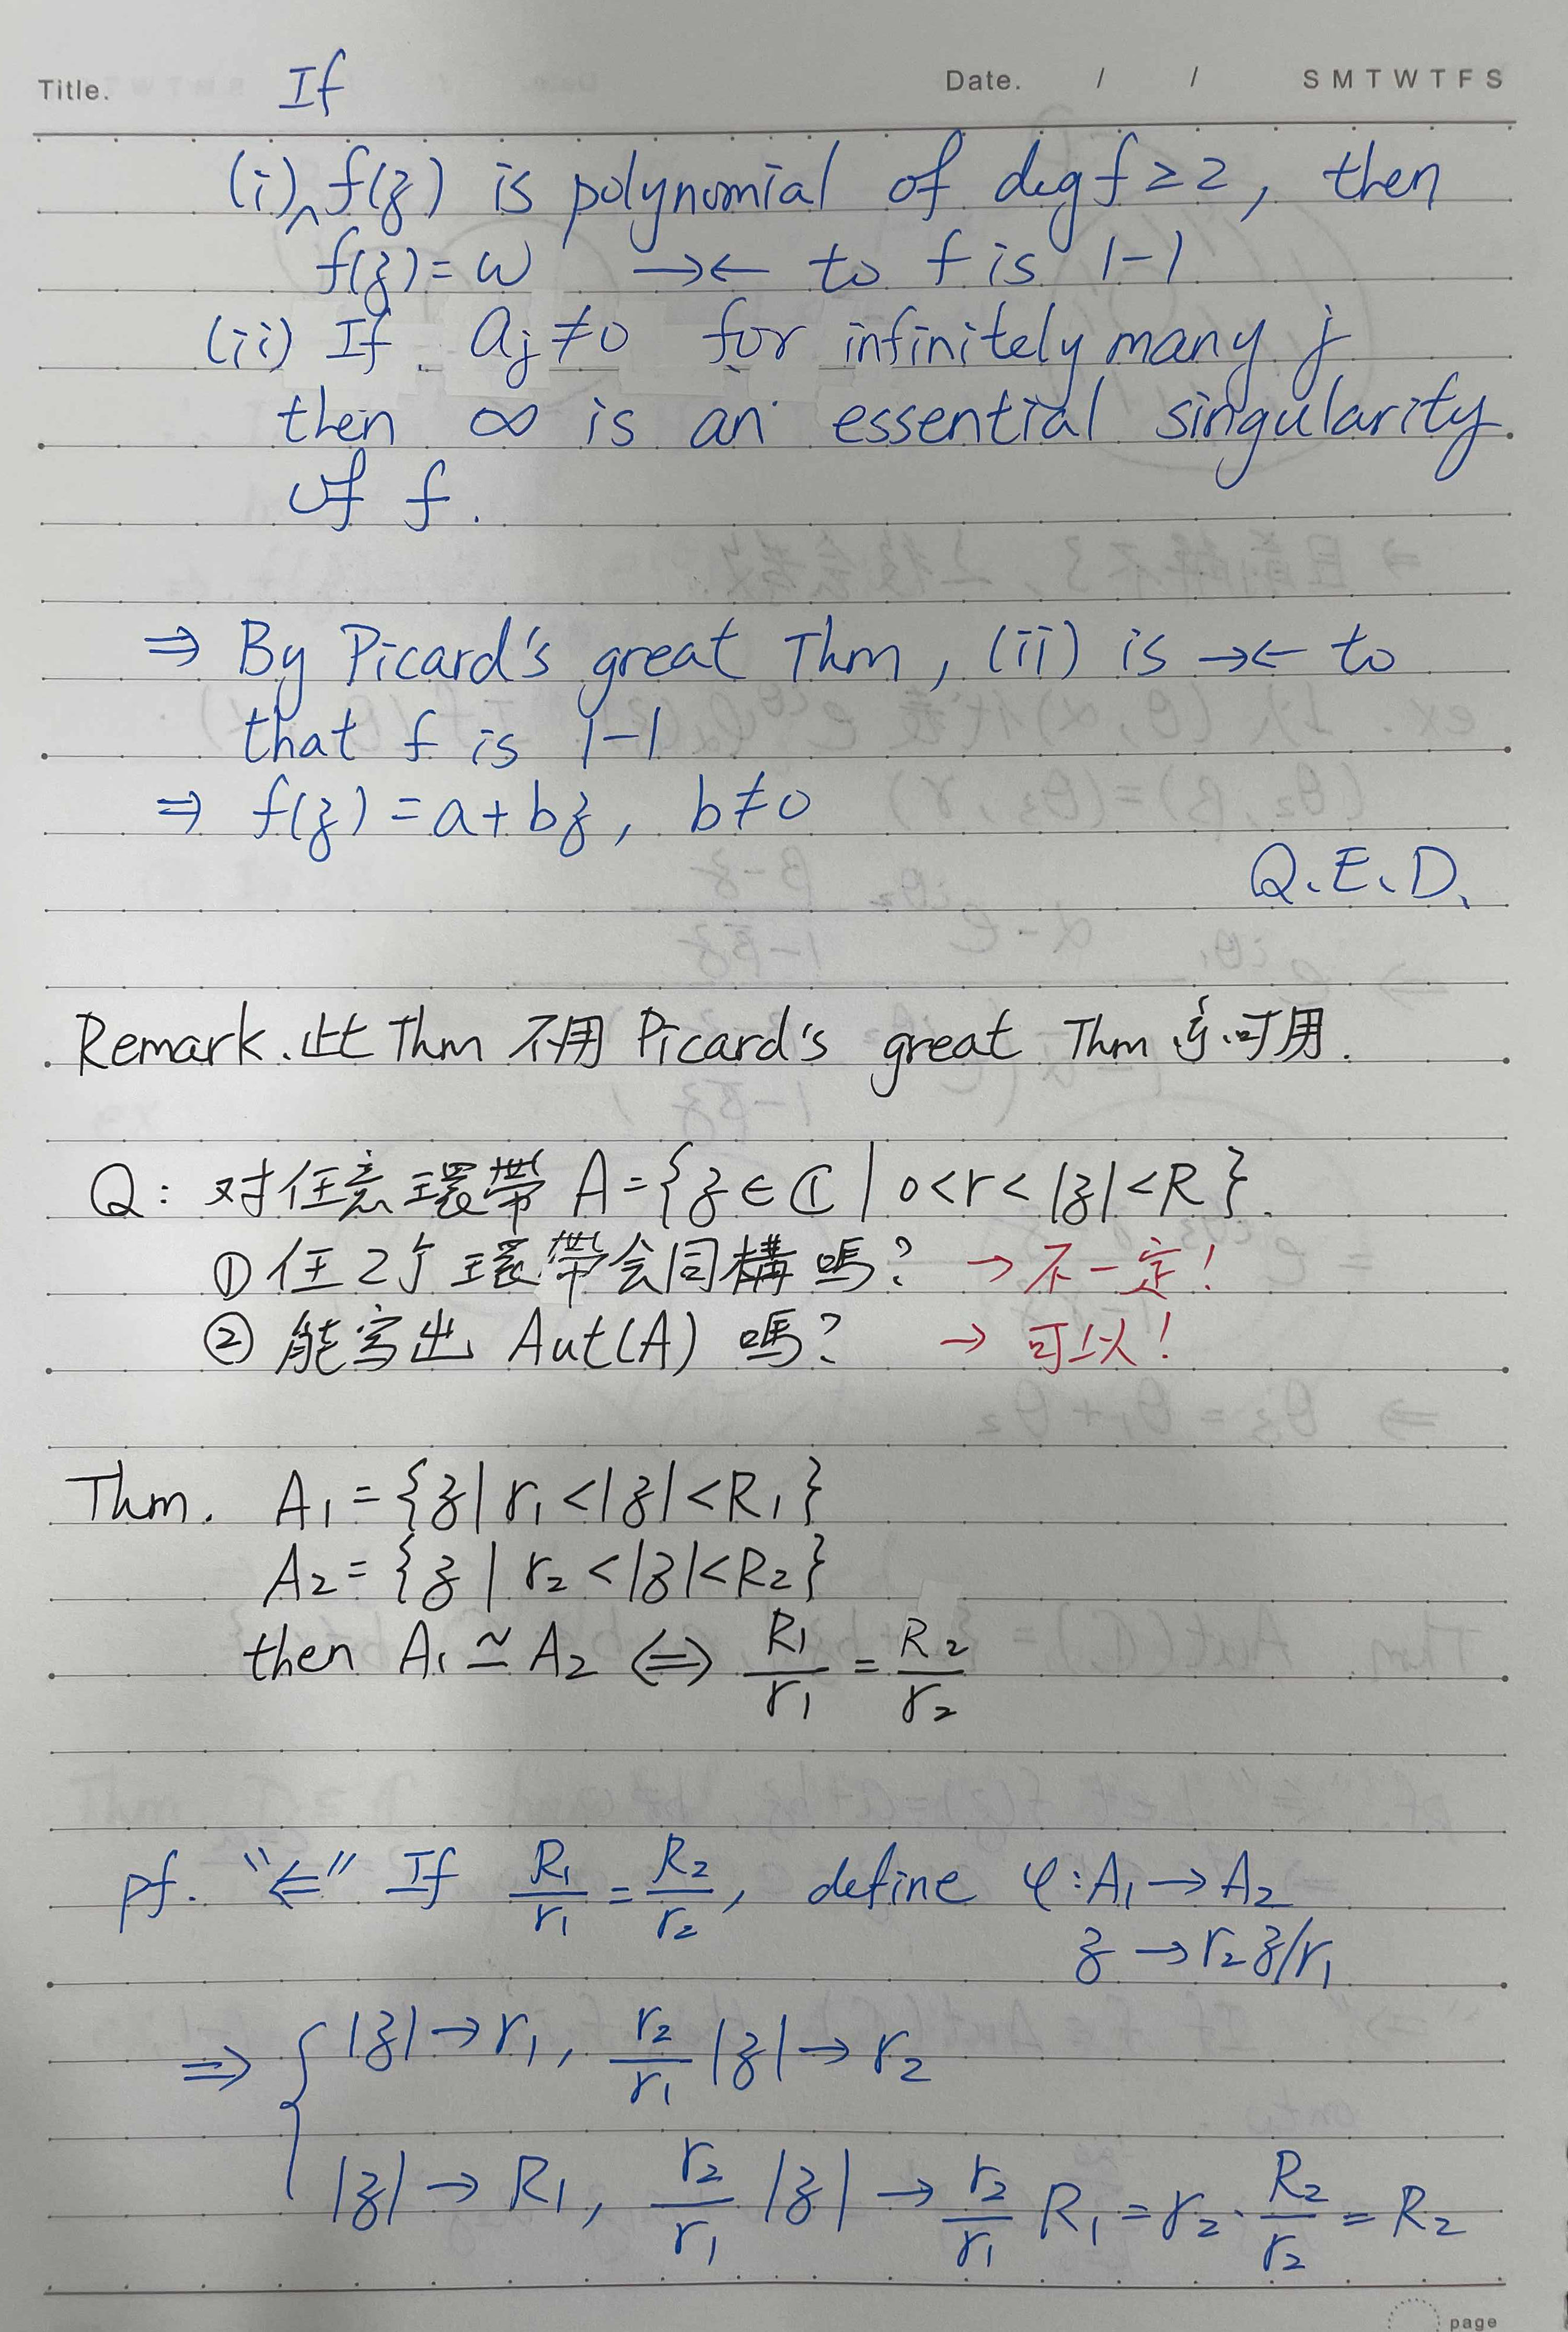 Title. If Date. / / S M T W T F S
(i)‸ f(z) is polynomial of deg f ≥ 2, then
f(z) = ω →← to f is 1-1
(ii) If aⱼ ≠ 0 for infinitely many j
then ∞ is an essential singularity
of f.
⇒ By Picard's great Thm, (ii) is →← to
that f is 1-1
⇒ f(z) = a + bz, b ≠ 0
Q.E.D.
Remark. 此 Thm 不用 Picard's great Thm 亦可用.
Q: 对任意環帶 A = {z ∈ ℂ | 0 < r < |z| < R}.
① 任2个環帶会同構嗎? → 不一定!
② 能写出 Aut(A) 嗎? → 可以!
Thm. A₁ = {z | r₁ < |z| < R₁}
A₂ = {z | r₂ < |z| < R₂}
then A₁ ≃ A₂ ⇔ R₁/r₁ = R₂/r₂
pf. "⇐" If R₁/r₁ = R₂/r₂, define φ: A₁ → A₂
z → r₂z/r₁
⇒ { |z| → r₁, r₂/r₁ |z| → r₂
|z| → R₁, r₂/r₁ |z| → r₂/r₁ R₁ = r₂ · R₂/r₂ = R₂
page